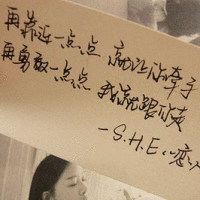 再靠近一点点 就让你牵手
再勇敢一点点 我就跟你走
—S.H.E《恋人